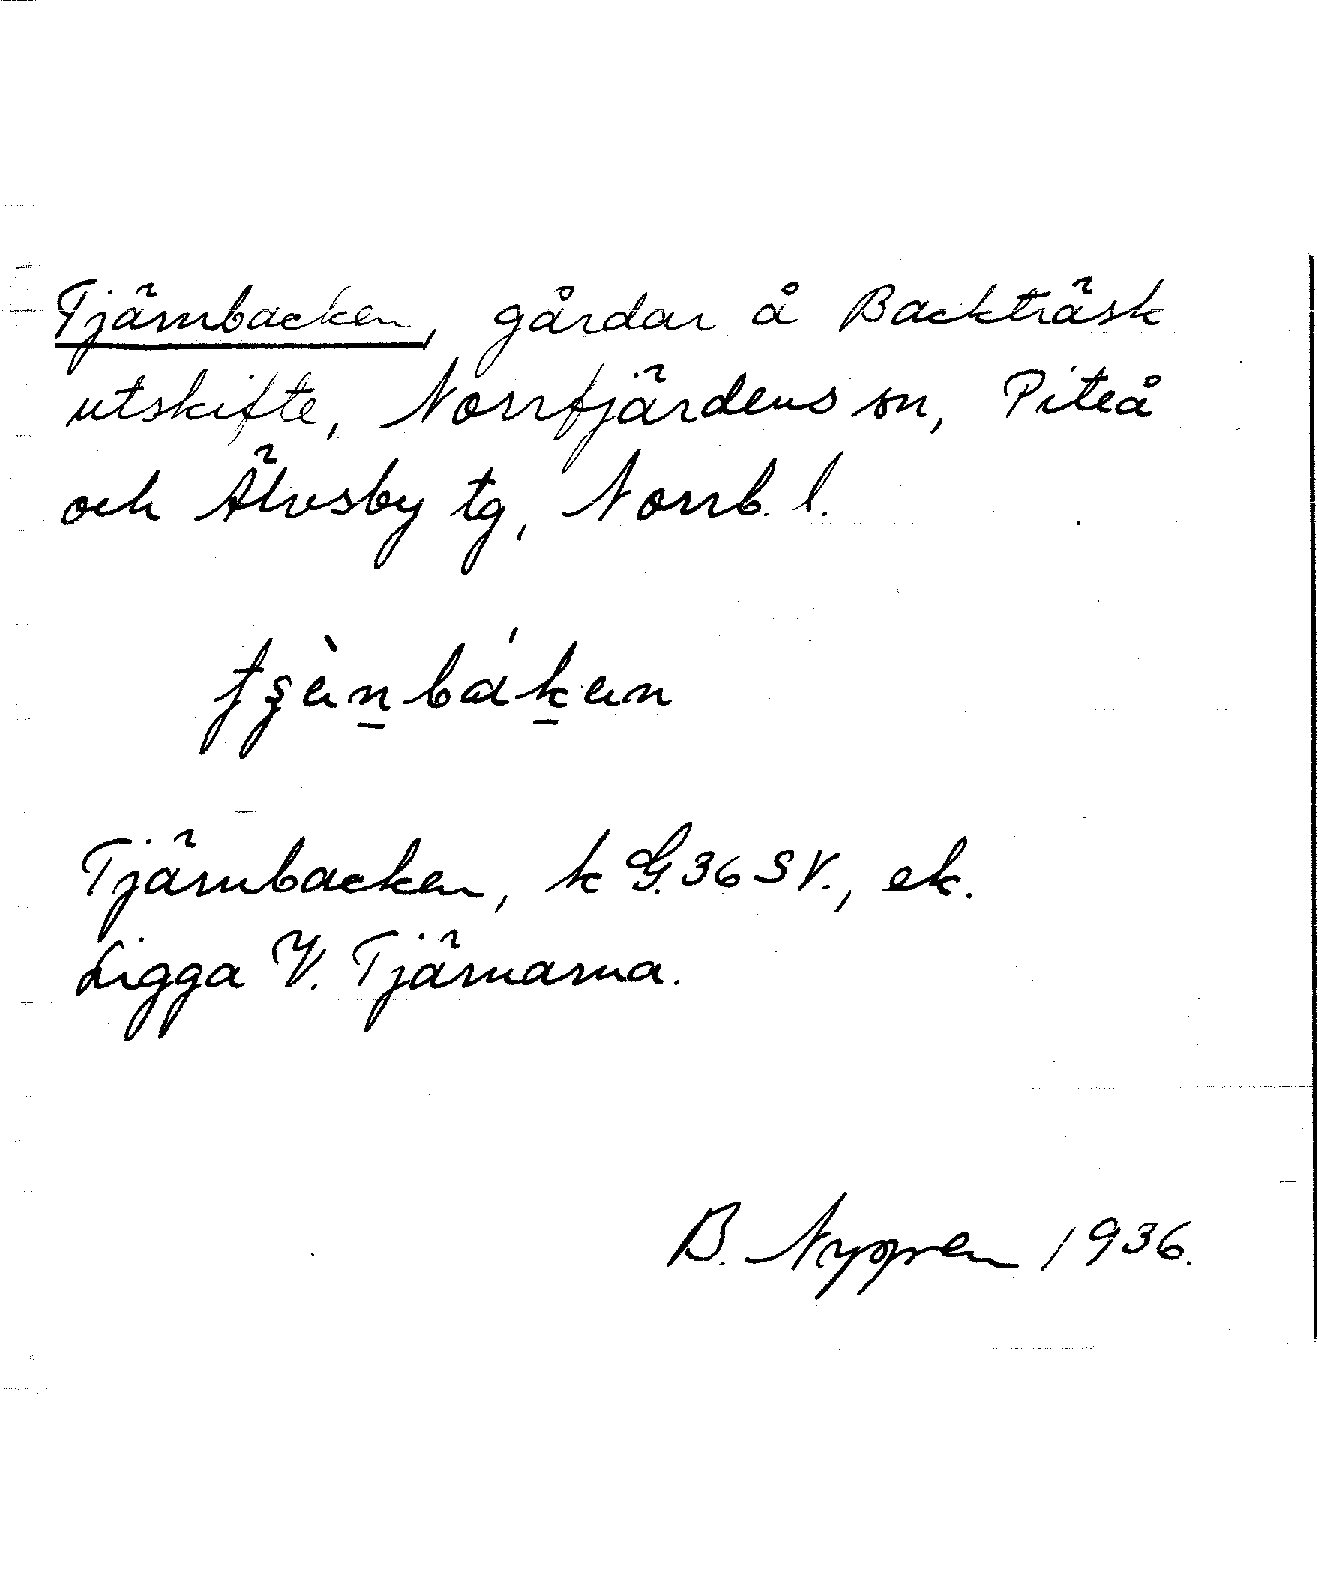 Tjärnbacken, gårdar å Backträsk
utskifte, Norrfjärdens sn, Piteå
och Älvsby tg, Norrb. l.
Tjärnbacken, k G.36 SV., ek.
Ligga V. Tjärnarna.
B. Nygren 1936.